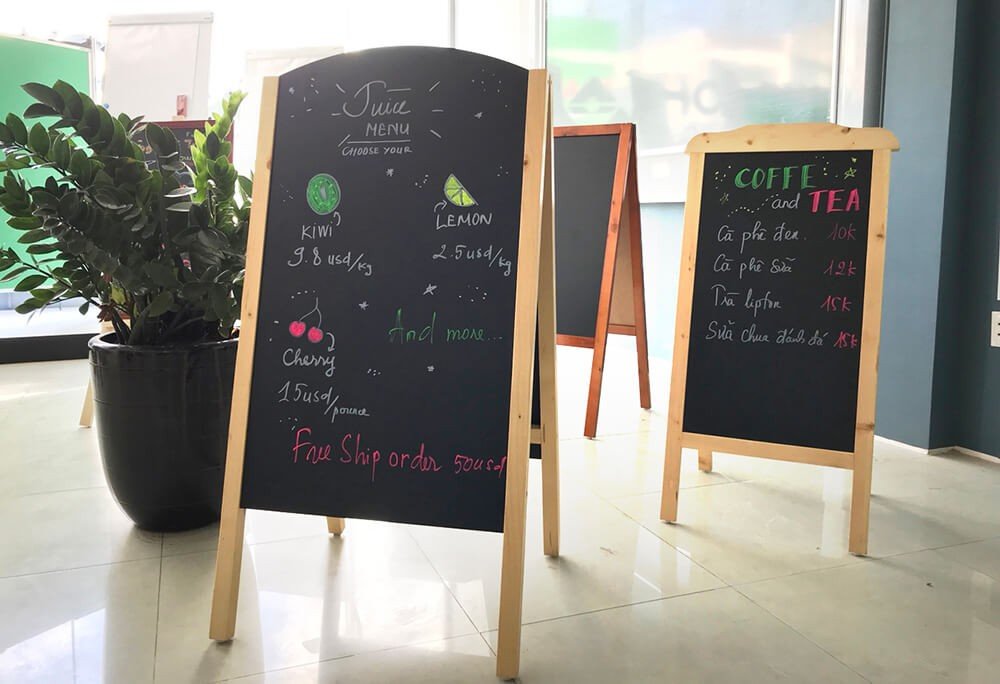 Juice
MENU
CHOOSE YOUR
KIWI
9.8 usd/kg
LEMON
2.5 usd/kg
Cherry
15 usd/pounce
And more...
Free Ship order 50usd
COFFE
and TEA
Cà phê đen 10k
Cà phê sữa 12k
Trà lipton 15k
Sữa chua đánh đá 15k